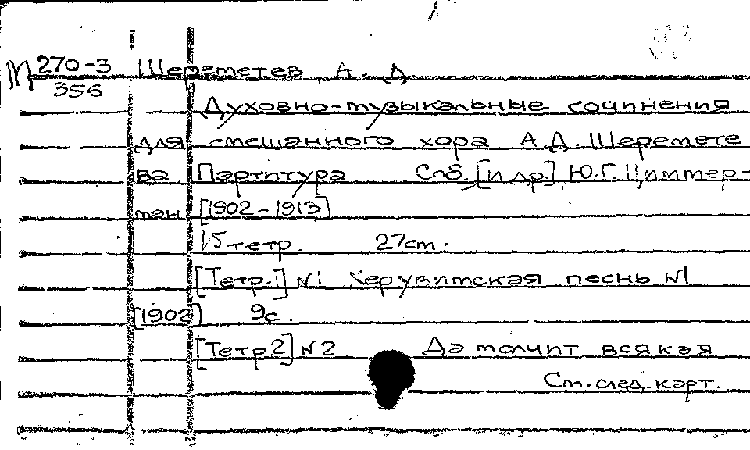 М 270-3 Шереметев, А. Д
356
Духовно-музыкальные сочинения
для смешанного хора А.Д. Шеремете
ва Партитура Спб. [и др.] Ю.Г. Циммер-
ман [1902-1913]
15 тетр. 27см.
[Тетр.1] №1 Херувимская песнь №1
[1902] 9с.
[Тетр2] №2 Да молчит всякая
См. след. карт.